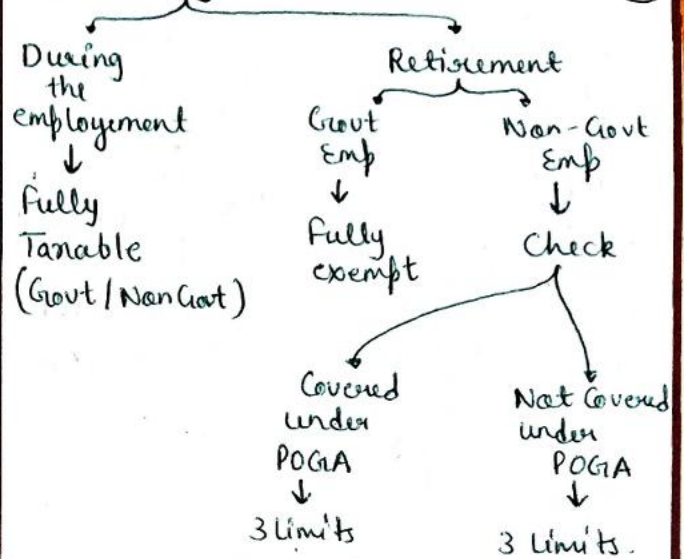 During
the
employement
Fully
Tanable
(Govt / Non Govt)
Retirement
Govt
Emp
Fully
exempt
Non-Govt
Emp
Check
Covered
under
POGA
3 limits
Not Covered
under
POGA
3 Limits.